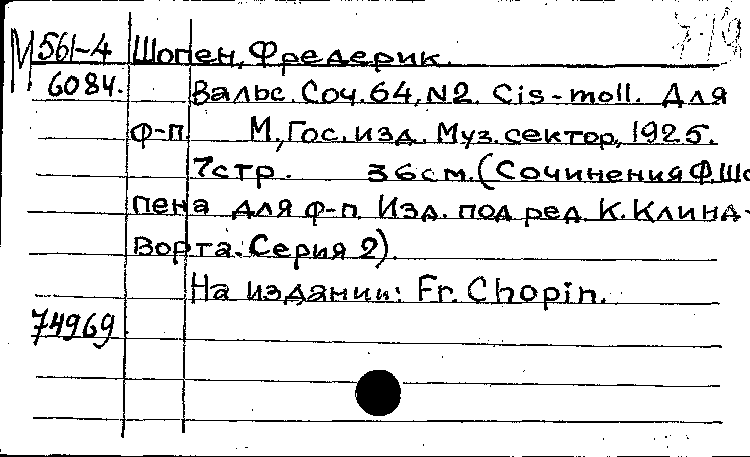 М 561-4 Шопен, Фредерик.
6084. Вальс. Соч. 64, N2. Cis-moll. Для
ф-п. М, Гос. изд. Муз. сектор, 1925.
7 стр. 36 см. (Сочинения Ф. Шо
пена для ф-п. Изд. под ред. К. Клинд-
ворта. Серия 2).
На издании: Fr. Chopin.
74969